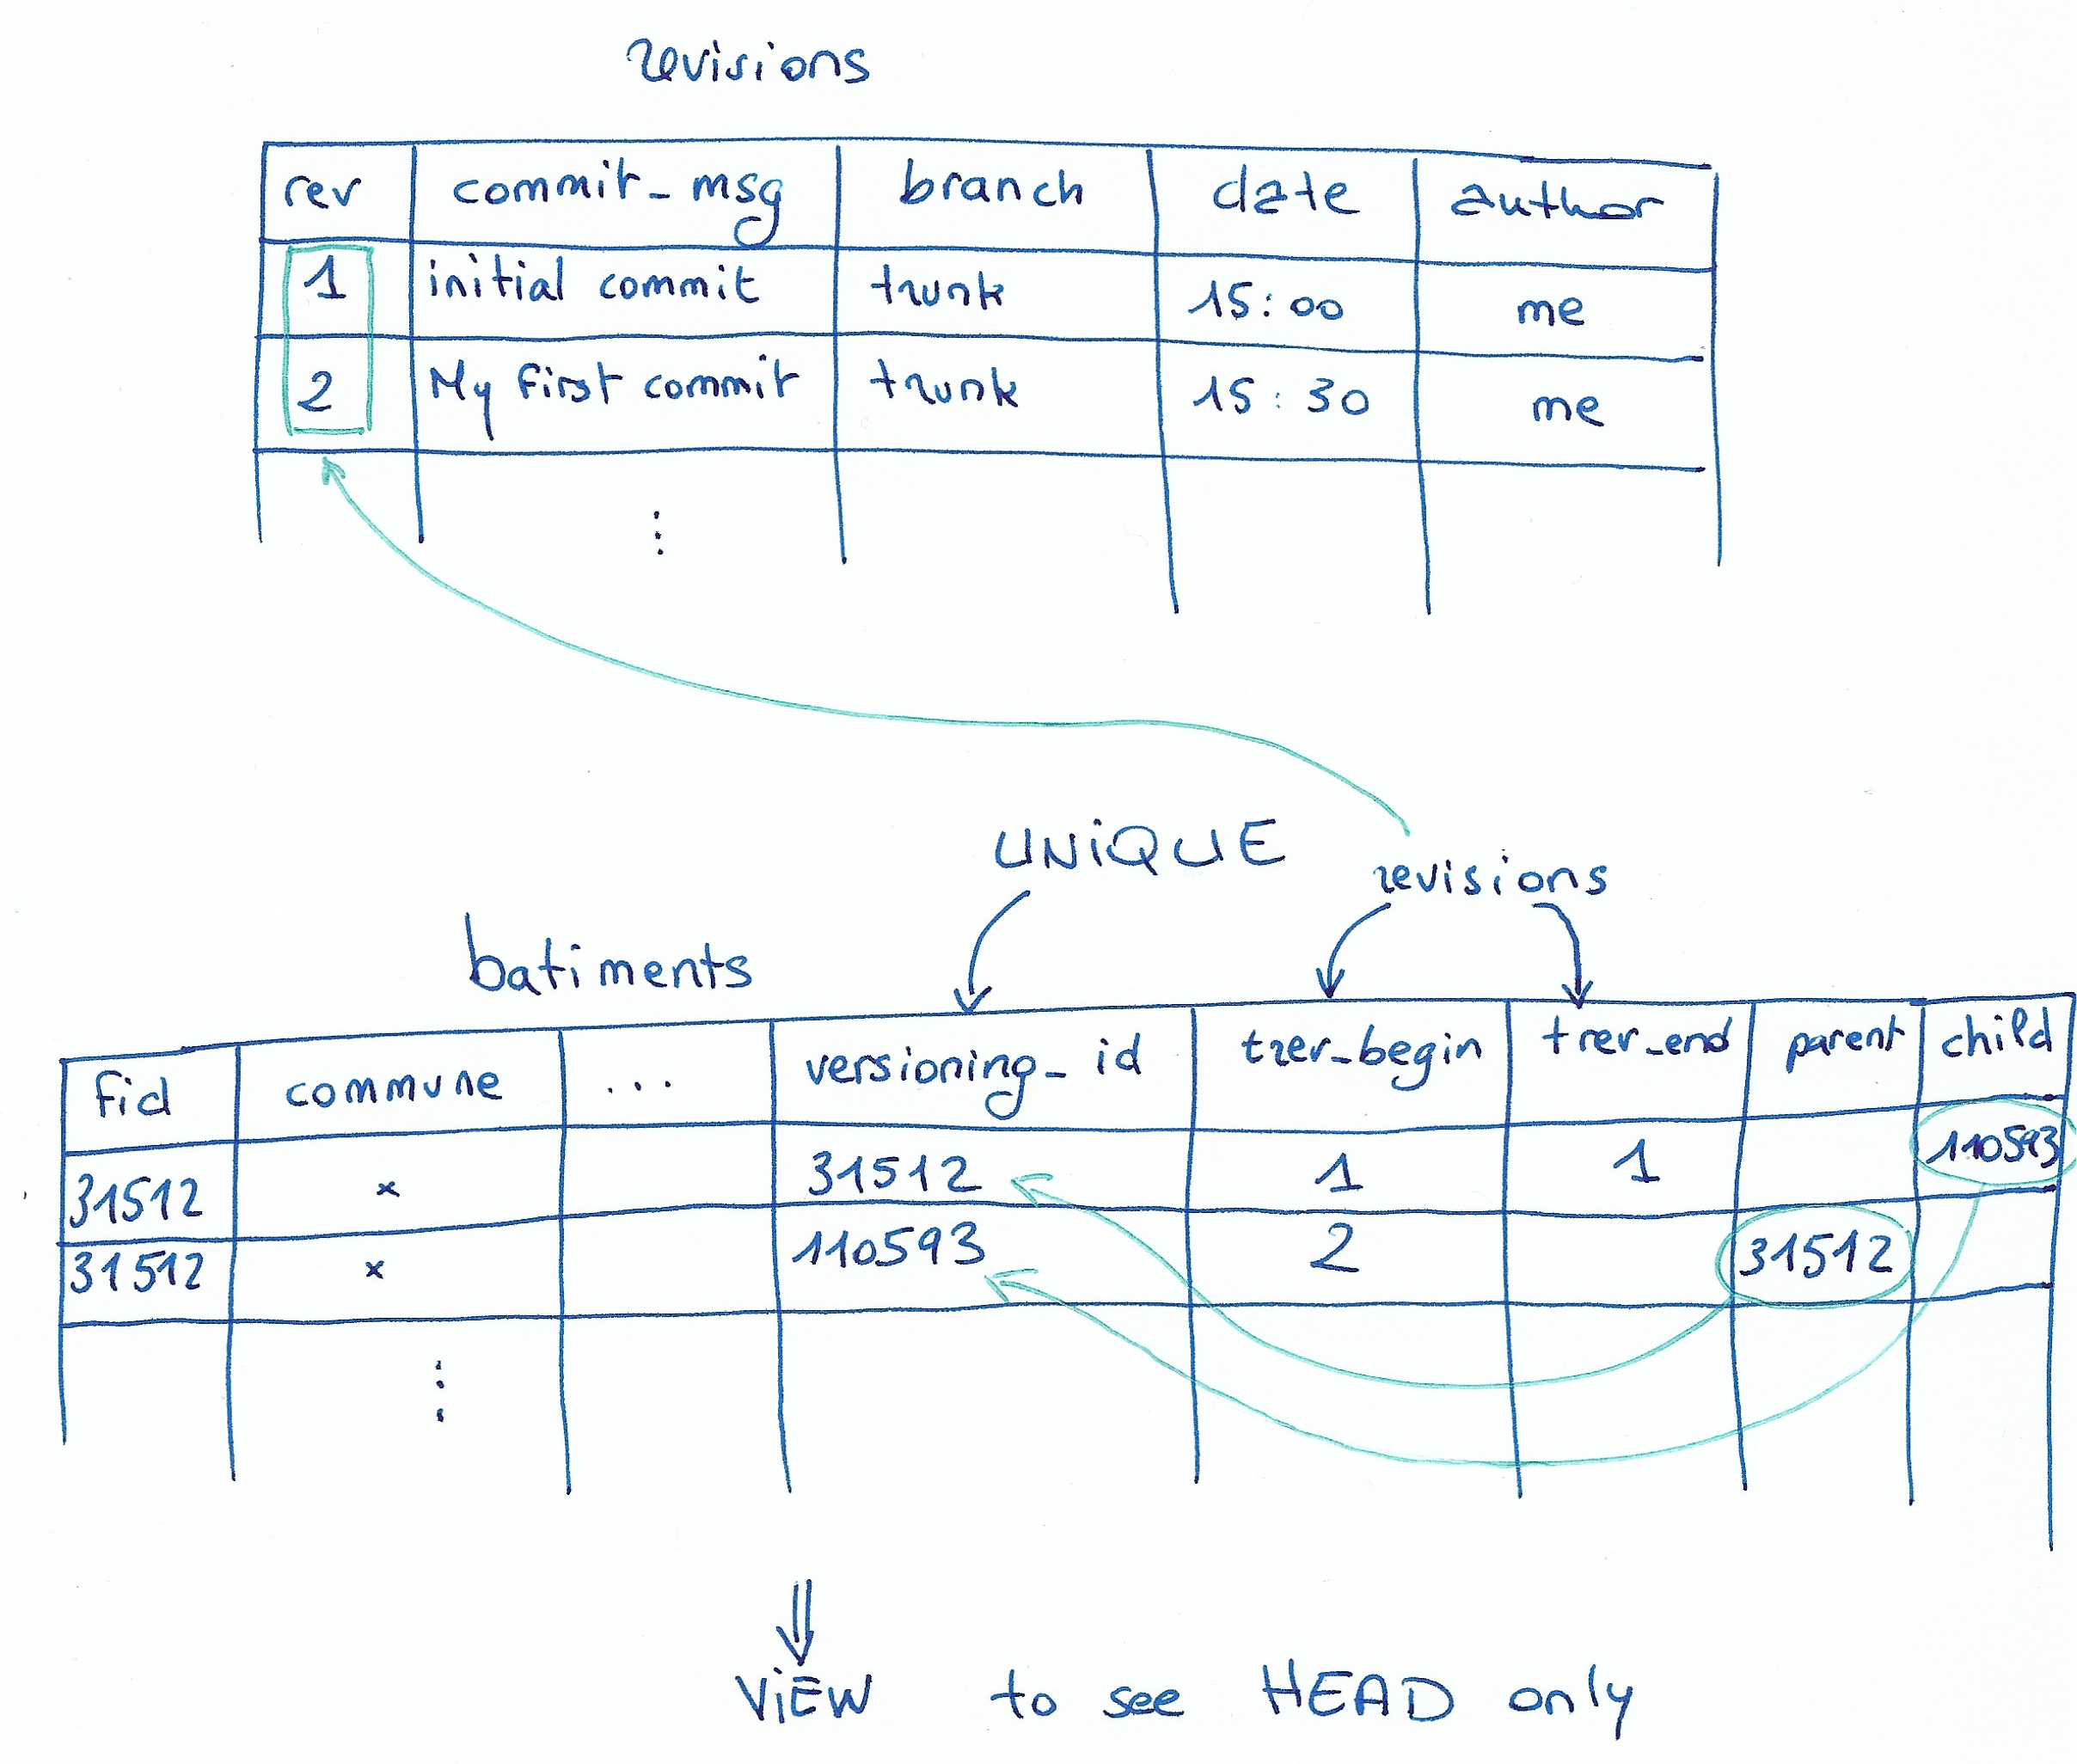 revisions
rev commit_msg branch date author
1 initial commit trunk 15:00 me
2 My first commit trunk 15:30 me
⋮
UNiQUE
revisions
batiments
fid commune ... versioning_id trev_begin trev_end parent child
31512 x 31512 1 1 110593
31512 x 110593 2 31512
⋮
ViEW to see HEAD only